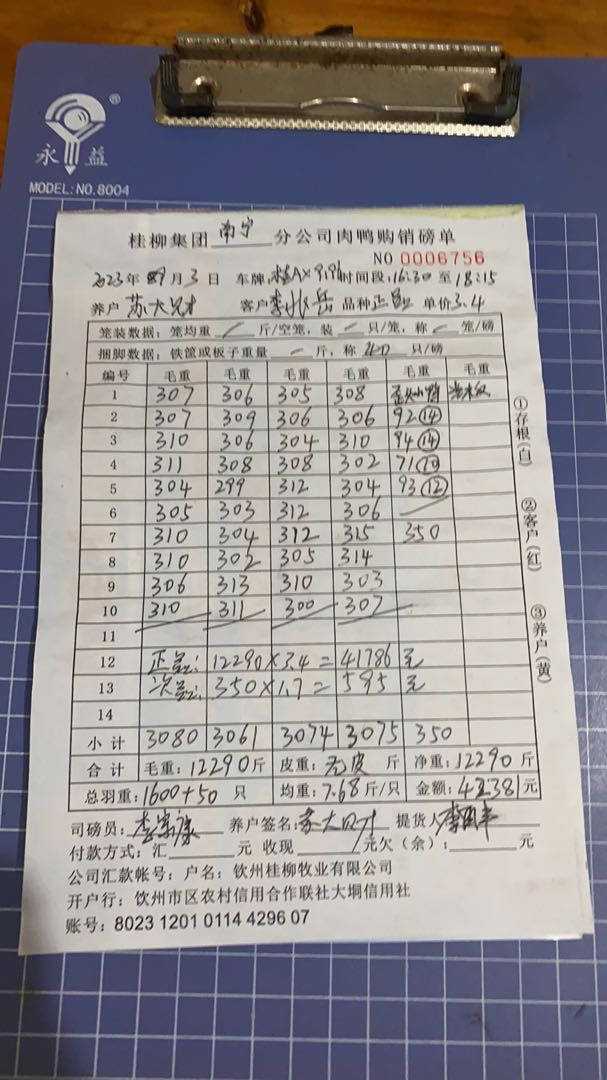 ®
永 益
MODEL: NO.8004
桂柳集团 南宁 分公司肉鸭购销磅单
NO 0006756
2023年 9月 3日 车牌: 时间段: 16:30 至 18:15
养户 苏大 客户 李兆岳 品种 正品 单价 3.4
笼装数据: 笼均重 斤/空笼, 装 只/笼, 称 笼/磅
捆脚数据: 铁筐或板子重量 斤, 称 40 只/磅
编号 毛重 毛重 毛重 毛重 毛重 毛重
1 307 306 305 308
2 307 309 306 306 92⑭
3 310 306 304 310 94⑭
4 311 308 308 302 71⑩
5 304 299 312 304 93⑫
6 305 303 312 306
7 310 304 312 315 350
8 310 302 305 314
9 306 313 310 303
10 310 311 300 307
11
12 正品: 12290×3.4=41786 元
13 次品: 350×1.7=595 元
14
小计 3080 3061 3074 3075 350
合计 毛重: 12290 斤 皮重: 无皮 斤 净重: 12290 斤
总羽重: 1600+50 只 均重: 7.68 斤/只 金额: 42381 元
司磅员: 养户签名: 苏大 提货人
付款方式: 汇 元 收现 元欠(余): 元
公司汇款帐号: 户名: 钦州桂柳牧业有限公司
开户行: 钦州市区农村信用合作联社大垌信用社
账号: 8023 1201 0114 4296 07
①存根(白)
②客户(红)
③养户(黄)